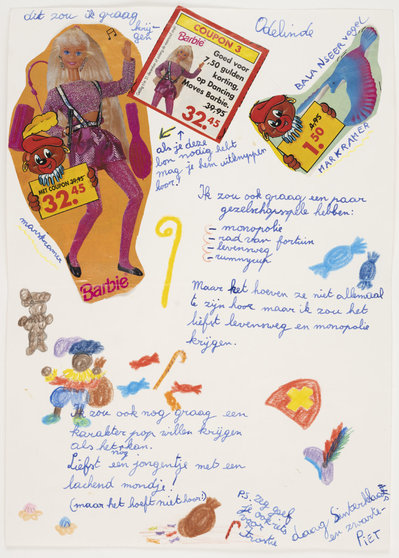 dit zou ik graag
krij-
gen
Odelinde
COUPON 3
Barbie
Goed voor
7.50 gulden
korting,
op Dancing
Moves Barbie.
39.95
32.45
BALANSEER vogel
4.95
1.50
MARSKRAMER
als je deze
bon nodig hebt
mag je hem uitknippen
hoor!
MET COUPON 39.95
32.45
marskramer
Barbie
Ik zou ook graag een paar
gezelschapsspele hebben:
- monopolie
- rad van fortuin
- levensweg
- rummyjup
Maar het hoeven ze niet allemaal
te zijn hoor maar ik zou het
liefst levensweg en monopolie
krijgen.
ik zou ook nog graag een
karakter pop willen krijgen
als het kan.
Liefst een jongentje met een
lachend mondje!
(maar het hoeft niet hoor!)
P.S. zeg geef
je ook iets
voor
daag Sinterklaas
en zwarte-
PIET